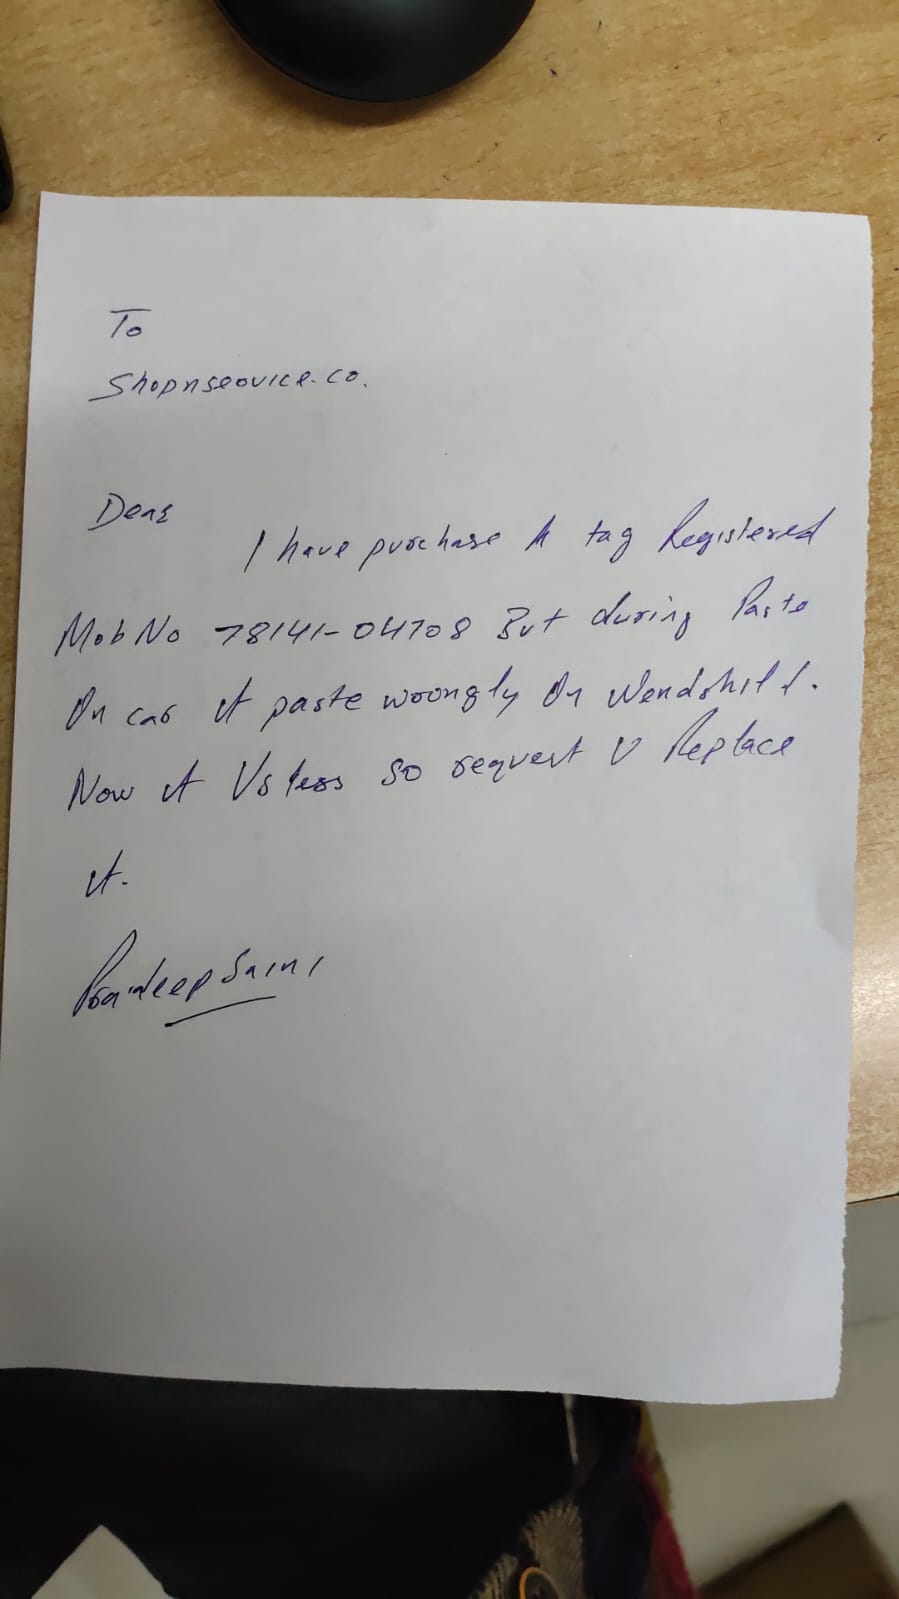 To
Shopnservice.co.
Dear
I have purchase A tag Registered
Mob No 78141-04708 But during Paste
On car it paste wrongly On Wendshild.
Now it Usless so request U Replace
it.
Pardeep Saini